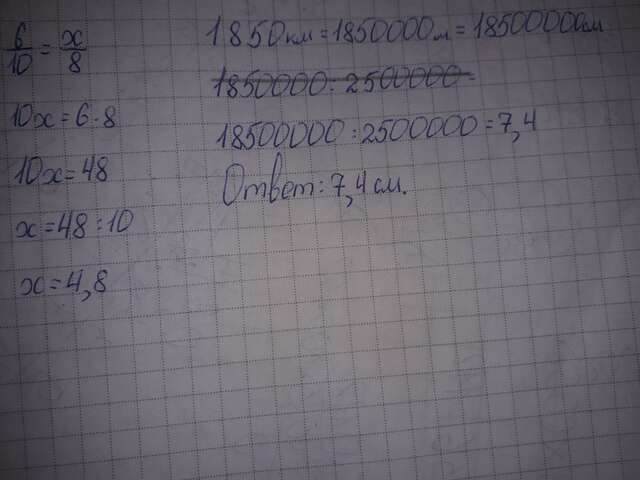 6/10 = x/8
10x = 6 · 8
10x = 48
x = 48 : 10
x = 4,8
1850км = 1850000м = 185000000см
1850000 : 2500000 =
18500000 : 2500000 = 7,4
Ответ: 7,4 см.